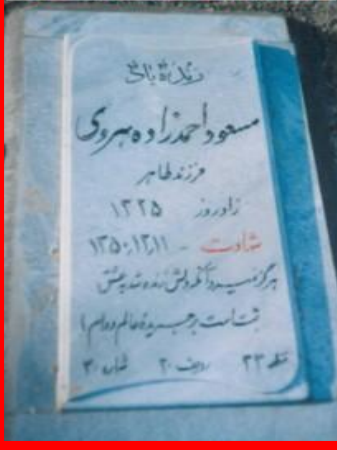 زنده یاد
مسعود احمدزاده هروی
فرزند طاهر
زادروز ۱۳۲۵
شهادت - ۱۳۵۰,۱۲,۱۱
هرگز نمیرد آنکه دلش زنده شد به عشق
ثبت است بر جریده عالم دوام ما
قطعه ۳۳ ردیف ۲۰ شماره ۳۰